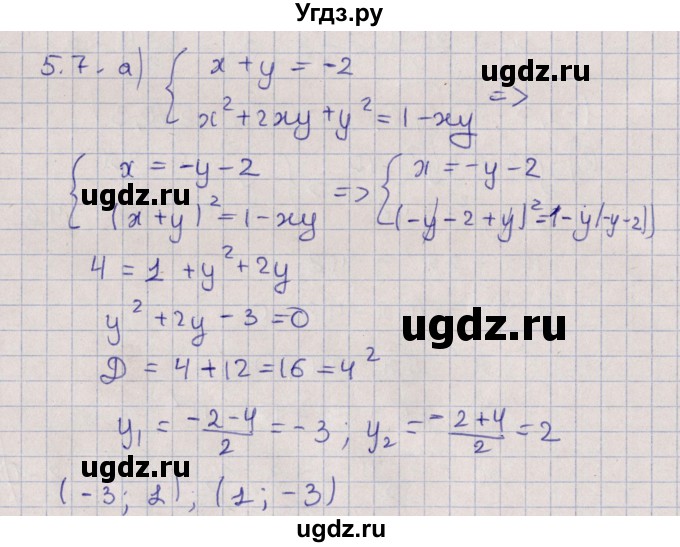 Угдз.ру
5.7. а) { x + y = -2
x² + 2xy + y² = 1 - xy =>
ugdz.ru
{ x = -y - 2
(x + y)² = 1 - xy => { x = -y - 2
(-y - 2 + y)² = 1 - y(-y - 2))
ugdz.ru
4 = 1 + y² + 2y
y² + 2y - 3 = 0
ugdz.ru
D = 4 + 12 = 16 = 4²
y₁ = (-2-4)/2 = -3 ; y₂ = -(2+4)/2 = 2
ugdz.ru
(-3; 1), (1; -3)
ugdz.ru
ugdz.ru